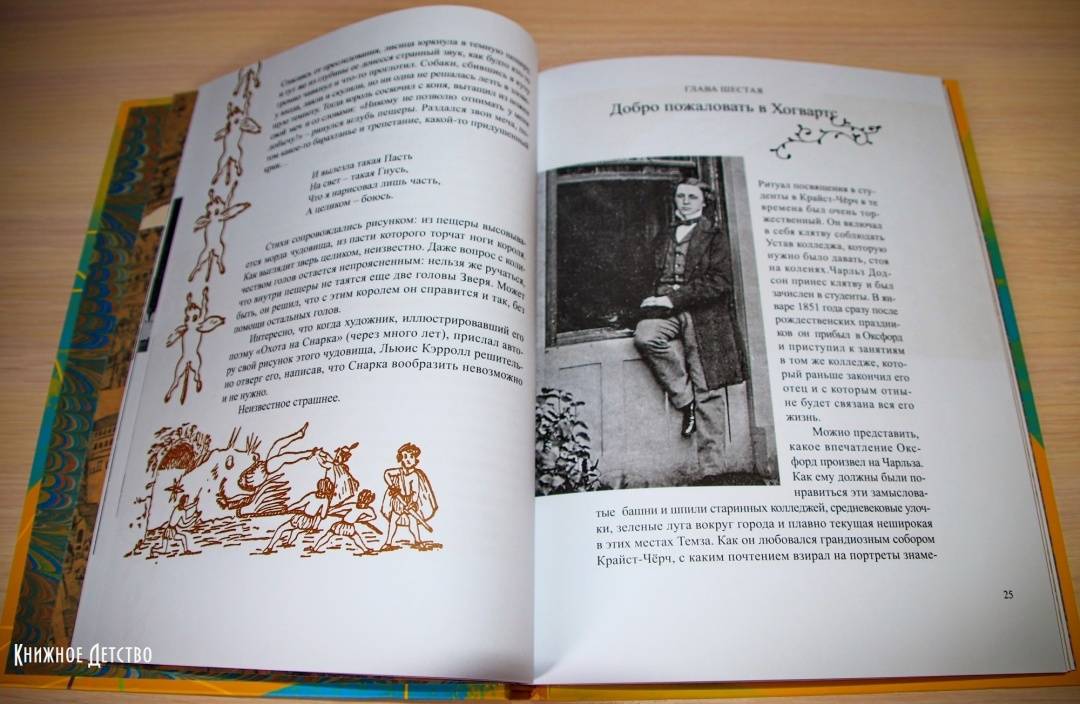 Спасаясь от преследования, лисица юркнула в темную пещеру,
и тут же из глубины ее донесся странный звук, как будто кто-то
громко чавкнул и что-то проглотил. Собаки, сбившись в кучу
у входа, выли и скулили, но ни одна не решалась лезть в злове-
щую темноту. Тогда король соскочил с коня, вытащил из ножен
свой меч и со словами: «Никому не позволю отнимать у меня
добычу!» – ринулся вглубь пещеры. Раздался звон меча, по-
том какое-то барахтанье и трепетание, какой-то придушенный
крик…
И вылезла такая Пасть
На свет – такая Гнусь,
Что я нарисовал лишь часть,
А целиком – боюсь.
Стихи сопровождались рисунком: из пещеры высовыва-
ется морда чудовища, из пасти которого торчат ноги короля.
Как выглядит зверь целиком, неизвестно. Даже вопрос с коли-
чеством голов остается непроясненным: нельзя же ручаться,
что внутри пещеры не таятся еще две головы Зверя. Может
быть, он решил, что с этим королем он справится и так, без
помощи остальных голов.
Интересно, что когда художник, иллюстрировавший его
поэму «Охота на Снарка» (через много лет), прислал авто-
ру свой рисунок этого чудовища, Льюис Кэрролл решитель-
но отверг его, написав, что Снарка вообразить невозможно
и не нужно.
Неизвестное страшнее.
ГЛАВА ШЕСТАЯ
Добро пожаловать в Хогвартс
Ритуал посвящения в сту-
денты в Крайст-Чёрч в те
времена был очень тор-
жественный. Он включал
в себя клятву соблюдать
Устав колледжа, которую
нужно было давать, стоя
на коленях. Чарльз Дод-
сон принес клятву и был
зачислен в студенты. В ян-
варе 1851 года сразу после
рождественских праздни-
ков он прибыл в Оксфорд
и приступил к занятиям
в том же колледже, кото-
рый раньше закончил его
отец и с которым отны-
не будет связана вся его
жизнь.
Можно представить,
какое впечатление Окс-
форд произвел на Чарльза.
Как ему должны были по-
нравиться эти замыслова-
тые башни и шпили старинных колледжей, средневековые улоч-
ки, зеленые луга вокруг города и плавно текущая неширокая
в этих местах Темза. Как он любовался грандиозным собором
Крайст-Чёрч, с каким почтением взирал на портреты знаме-
25
Книжное Детство